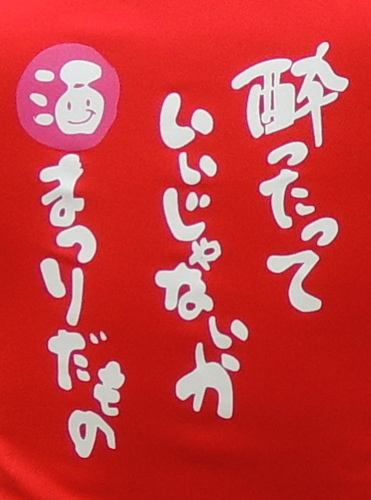 酔ったって
いいじゃないか
酒まつりだもの